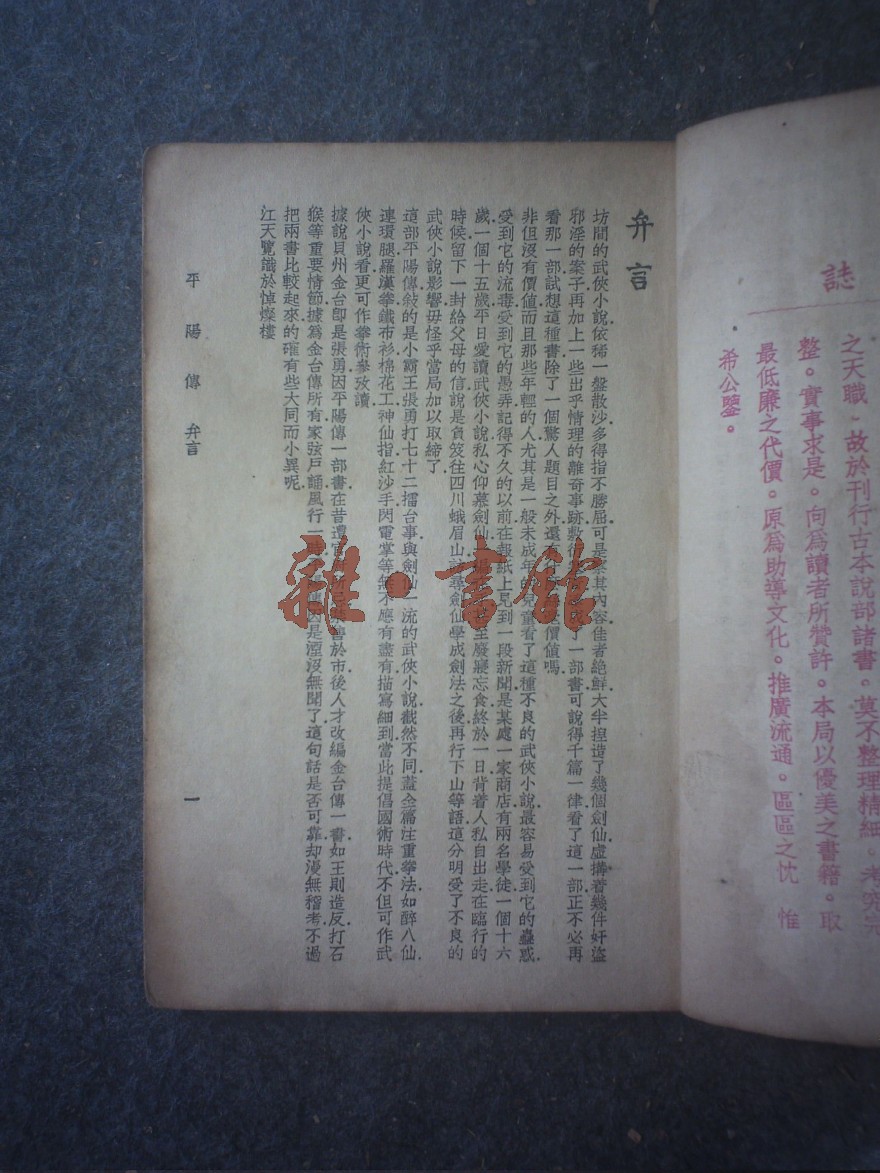 弁言
坊間的武俠小說依稀一盤散沙多得指不勝屈可是察其內容佳者絕鮮大半捏造了幾個劍仙虛搆着幾件奸盜
邪淫的案子再加上一些出乎情理的離奇事跡敷衍 了一部書可說得千篇一律看了這一部正不必再
看那一部試想這種書除了一個驚人題目之外還 價值嗎
非但沒有價值而且那些年輕的人尤其是一般未成年的兒童看了這種不良的武俠小說最容易受到它的蟲惑
受到它的流毒受到它的愚弄記得不久的以前在報紙上見到一段新聞是某處一家商店有兩名學徒一個十六
歲一個十五歲平日愛讀武俠小說私心仰慕劍仙 至廢寢忘食終於一日背着人私自出走在臨行的
時候留下一封給父母的信說是負笈往四川蛾眉山訪尋劍仙學成劍法之後再行下山等語這分明受了不良的
武俠小說影響毋怪乎當局加以取締了
這部平陽傳敍的是小霸王張勇打七十二擂台事與劍仙一流的武俠小說截然不同蓋全篇注重拳法如醉八仙
連環腿羅漢拳鐵布衫棉花工神仙指紅沙手閃電掌等無不應有盡有描寫細到當此提倡國術時代不但可作武
俠小說看更可作拳術參攷讀
據說貝州金台卽是張勇因平陽傳一部書在昔遭官 書於市後人才改編金台傳一書如王則造反打石
猴等重要情節據爲金台傳所有家弦戶誦風行一時 因是湮沒無聞了這句話是否可靠却漫無稽考不過
把兩書比較起來的確有些大同而小異呢
江天覽識於悼燦樓
平陽傳 弁言
一
雜·書館
誌
之天職。故於刊行古本說部諸書。莫不整理精細。考究完
整。實事求是。向爲讀者所贊許。本局以優美之書籍。取
最低廉之代價。原爲助導文化。推廣流通。區區之忱 惟
希公鑒。